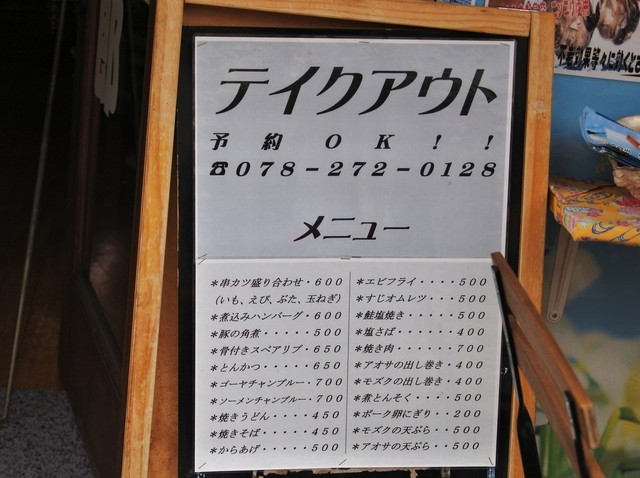 テイクアウト
予約OK!!
☎078-272-0128
メニュー
*串カツ盛り合わせ・600
(いも、えび、ぶた、玉ねぎ)
*煮込みハンバーグ・600
*豚の角煮・・・・・500
*骨付きスペアリブ・650
*とんかつ・・・・・650
*ゴーヤチャンプルー・700
*ソーメンチャンプルー・700
*焼きうどん・・・・・450
*焼きそば・・・・・450
*からあげ・・・・・500
*エビフライ・・・・500
*すじオムレツ・・・500
*鮭塩焼き・・・・・500
*塩さば・・・・・・400
*焼き肉・・・・・・700
*アオサの出し巻き・400
*モズクの出し巻き・400
*煮とんそく・・・・500
*ポーク卵にぎり・・200
*モズクの天ぷら・・500
*アオサの天ぷら・・500